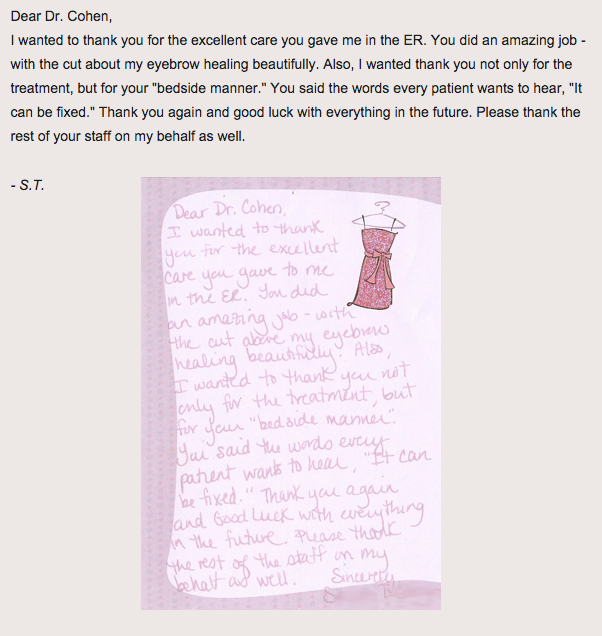 Dear Dr. Cohen,
I wanted to thank you for the excellent care you gave me in the ER. You did an amazing job -
with the cut about my eyebrow healing beautifully. Also, I wanted thank you not only for the
treatment, but for your "bedside manner." You said the words every patient wants to hear, "It
can be fixed." Thank you again and good luck with everything in the future. Please thank the
rest of your staff on my behalf as well.
- S.T.
Dear Dr. Cohen,
I wanted to thank
you for the excellent
care you gave to me
in the ER. You did
an amazing job - with
the cut above my eyebrow
healing beautifully. Also,
I wanted to thank you not
only for the treatment, but
for your "bedside manner."
You said the words every
patient wants to hear, "It can
be fixed." Thank you again
and Good Luck with everything
in the future. Please thank
the rest of the staff on my
behalf as well. Sincerely